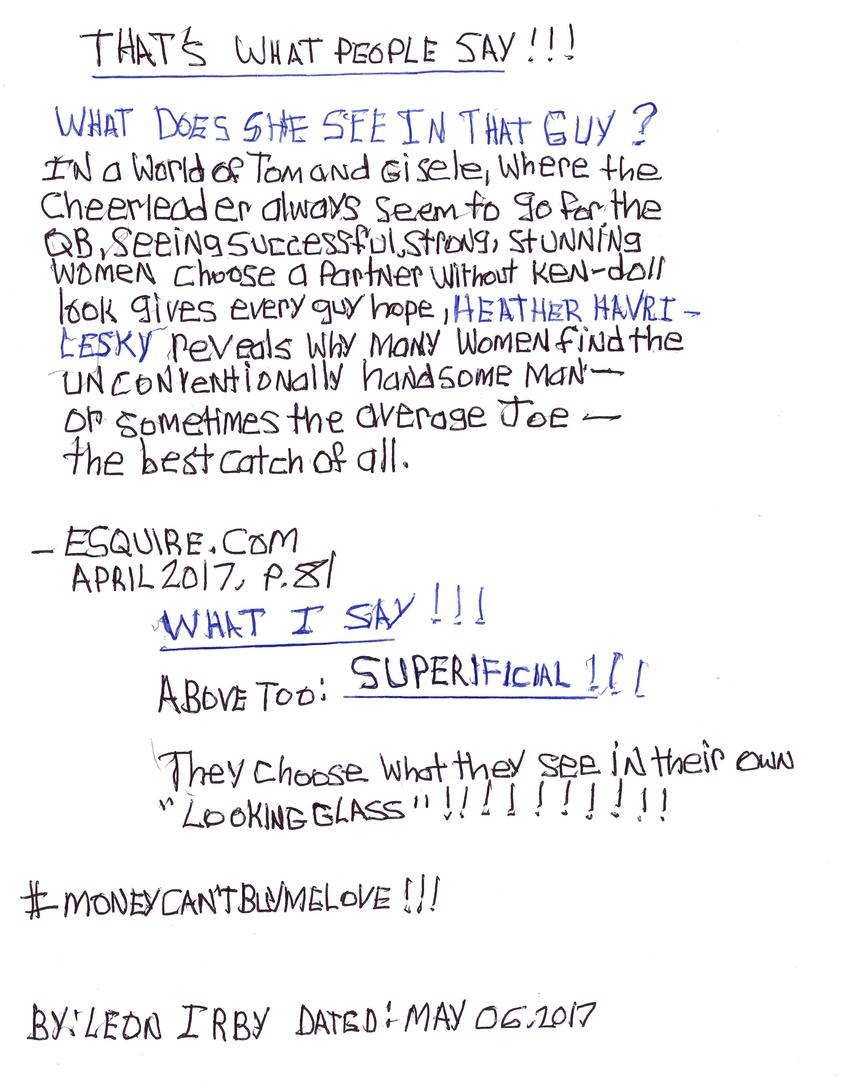 THAT'S WHAT PEOPLE SAY!!!
WHAT DOES SHE SEE IN THAT GUY?
IN a World of Tom and Gisele, Where the
Cheerleader always seem to go for the
QB, Seeing Successful, Strong, StUNNiNg
WOMEN Choose a PartNer Without KEN-doll
look gives every guy hope, HEATHER HAVRI-
LESKY reveals Why MaNy WomeN find the
UNCONVentioNally handsome MaN—
or sometimes the average Joe —
the best catch of all.
– ESQUIRE.COM
APRIL 2017, P.81
WHAT I SAY!!!
ABOVE TOO: SUPERIFICIAL!!!
They choose what they see iN their own
"LOOKING GLASS"!!!!!!!!!!
#MONEYCAN'TBUYMELOVE!!!
BY: LEON IRBY DATED: MAY 06, 2017